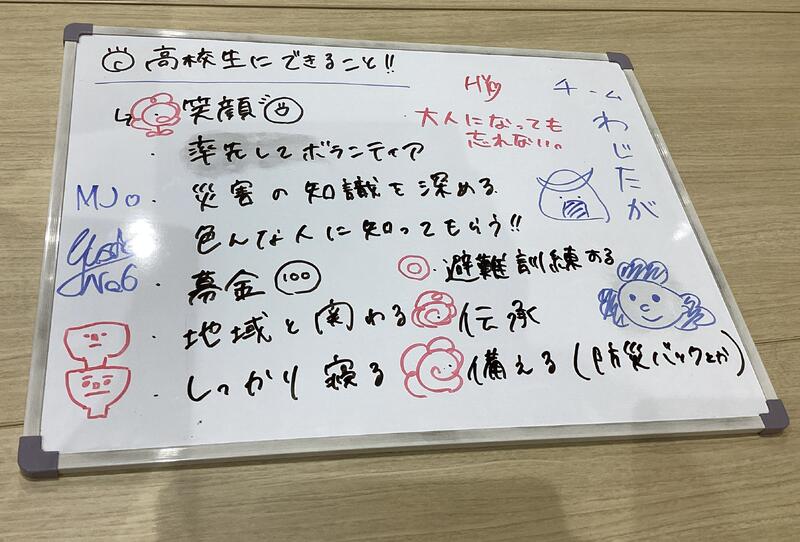 高校生にできること!!
笑顔
率先してボランティア
災害の知識を深める
色んな人に知ってもらう!!
募金 100
地域と関わる
しっかり寝る
避難訓練する
伝承
備える(防災バックとか)
大人になっても
忘れない。
チーム
わじたが
MJo
No6